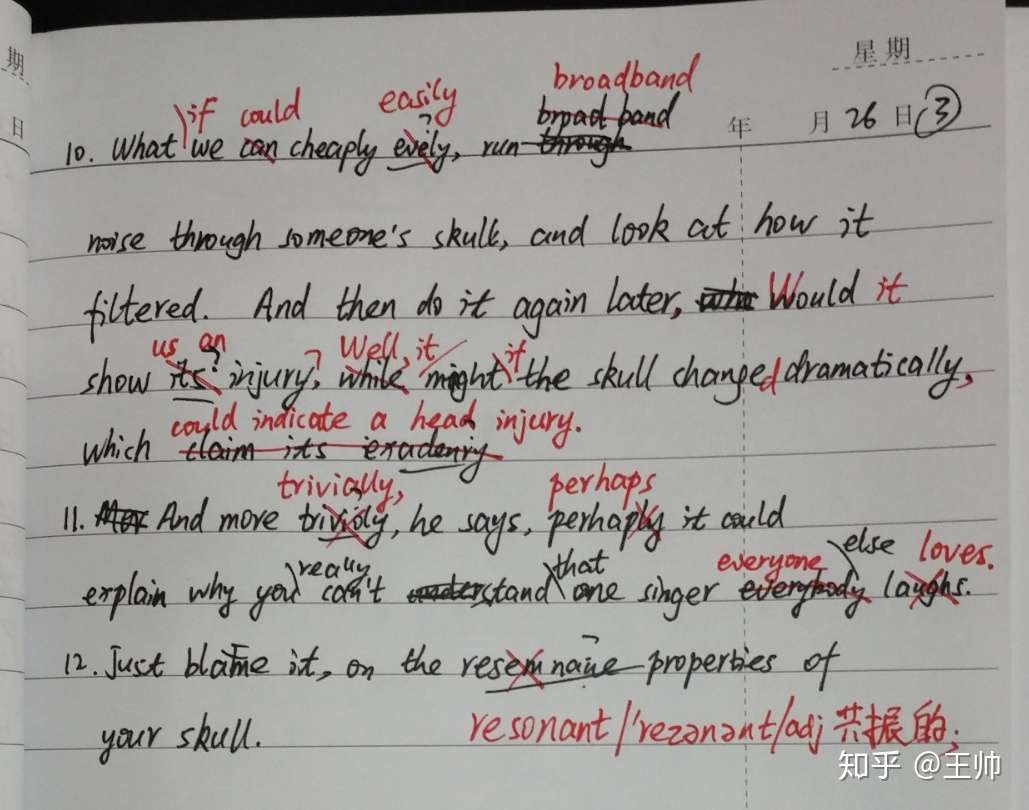 期
日
星期
年 月 26 日 ③
if could easily broadband
broad band
10. What we can cheaply evely, run through
noise through someone's skull, and look at how it
filtered. And then do it again later, Would it
us an ? Well, it if
show its injury, while might the skull changed dramatically,
could indicate a head injury.
which claim its exadenry
trivially, perhaps
11. And more trividy, he says, perhaply it could
really that everyone else loves.
explain why you can't understand one singer everybody laughs.
12. Just blame it, on the resemnane properties of
your skull. resonant /'rezənənt/adj 共振的;
知乎 @王帅